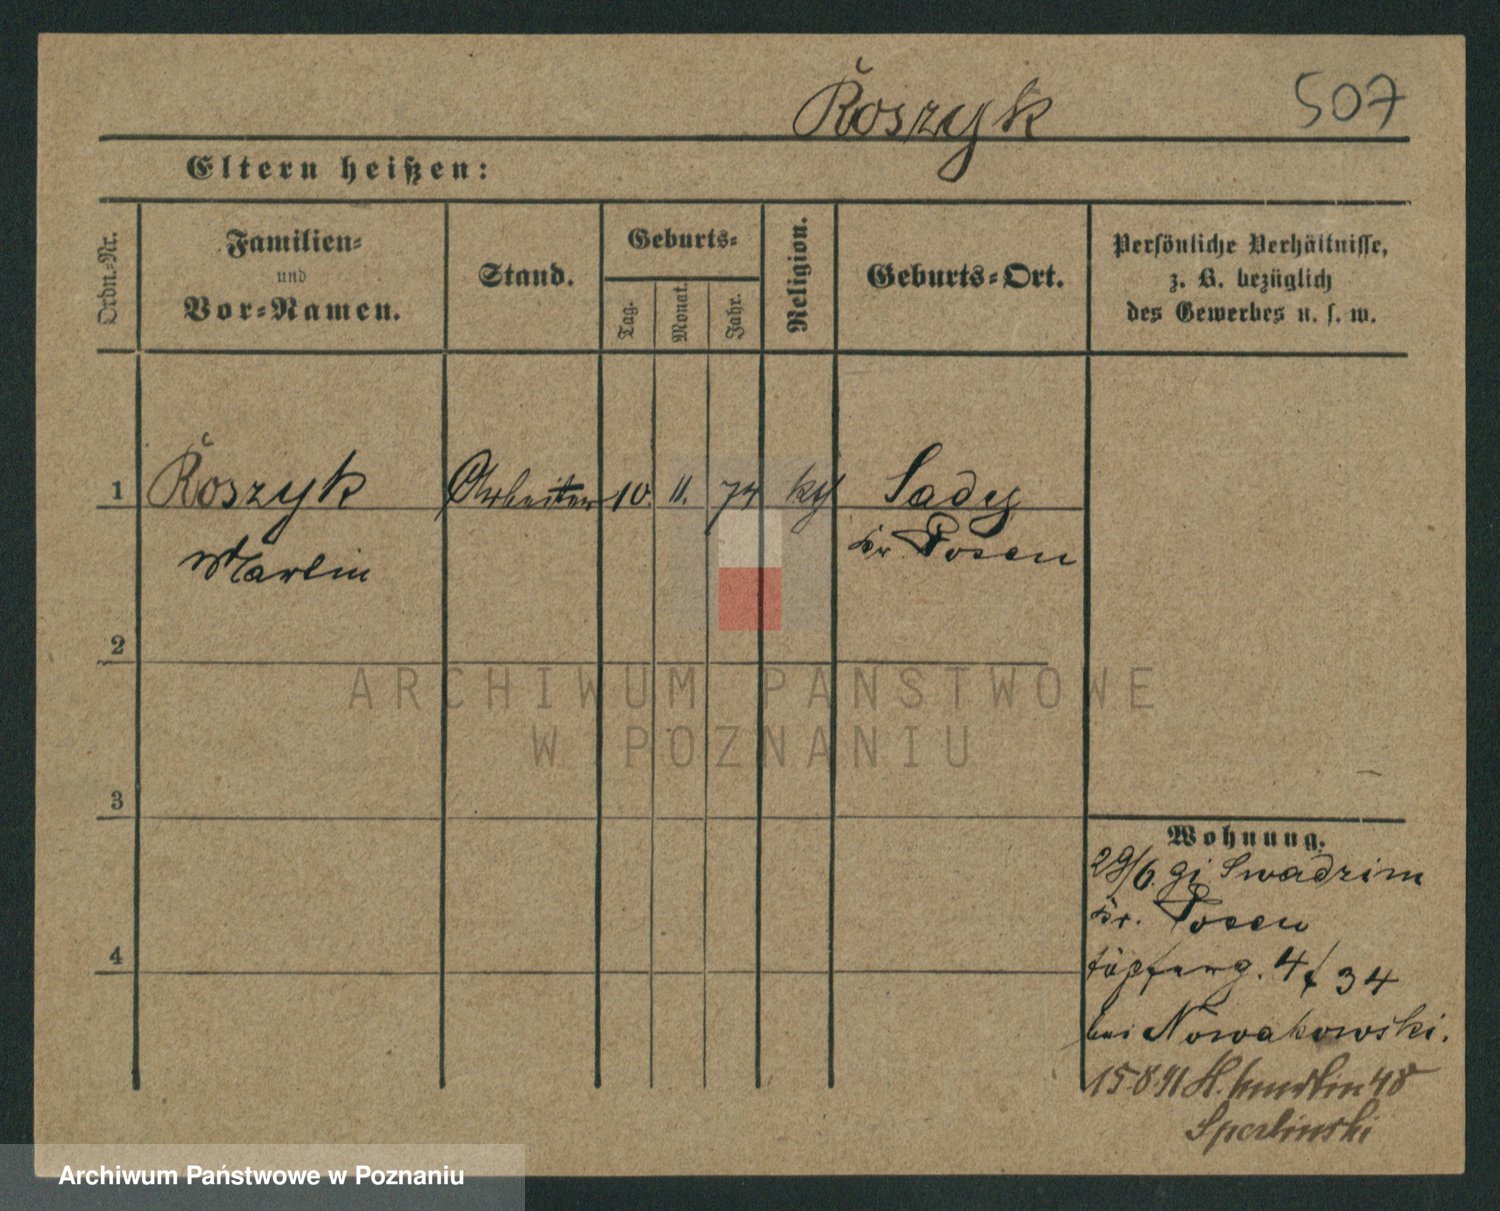 Roszyk 507
Eltern heißen:
Ordn.-Nr.
Familien-
und
Vor-Namen.
Stand.
Geburts-
Tag.
Monat.
Jahr.
Religion.
Geburts-Ort.
Persönliche Verhältnisse,
z. B. bezüglich
des Gewerbes u. s. w.
1 Roszyk Arbeiter 10. 11. 74 kth Sady
Martin Kr. Posen
2
3
4
Wohnung.
29/6. 91 Swadzim
Kr. Posen
Töpferg. 4 34
bei Nowakowski.
15.8.91 St. Martin 48
ARCHIWUM PAŃSTWOWE
W POZNANIU
Archiwum Państwowe w Poznaniu